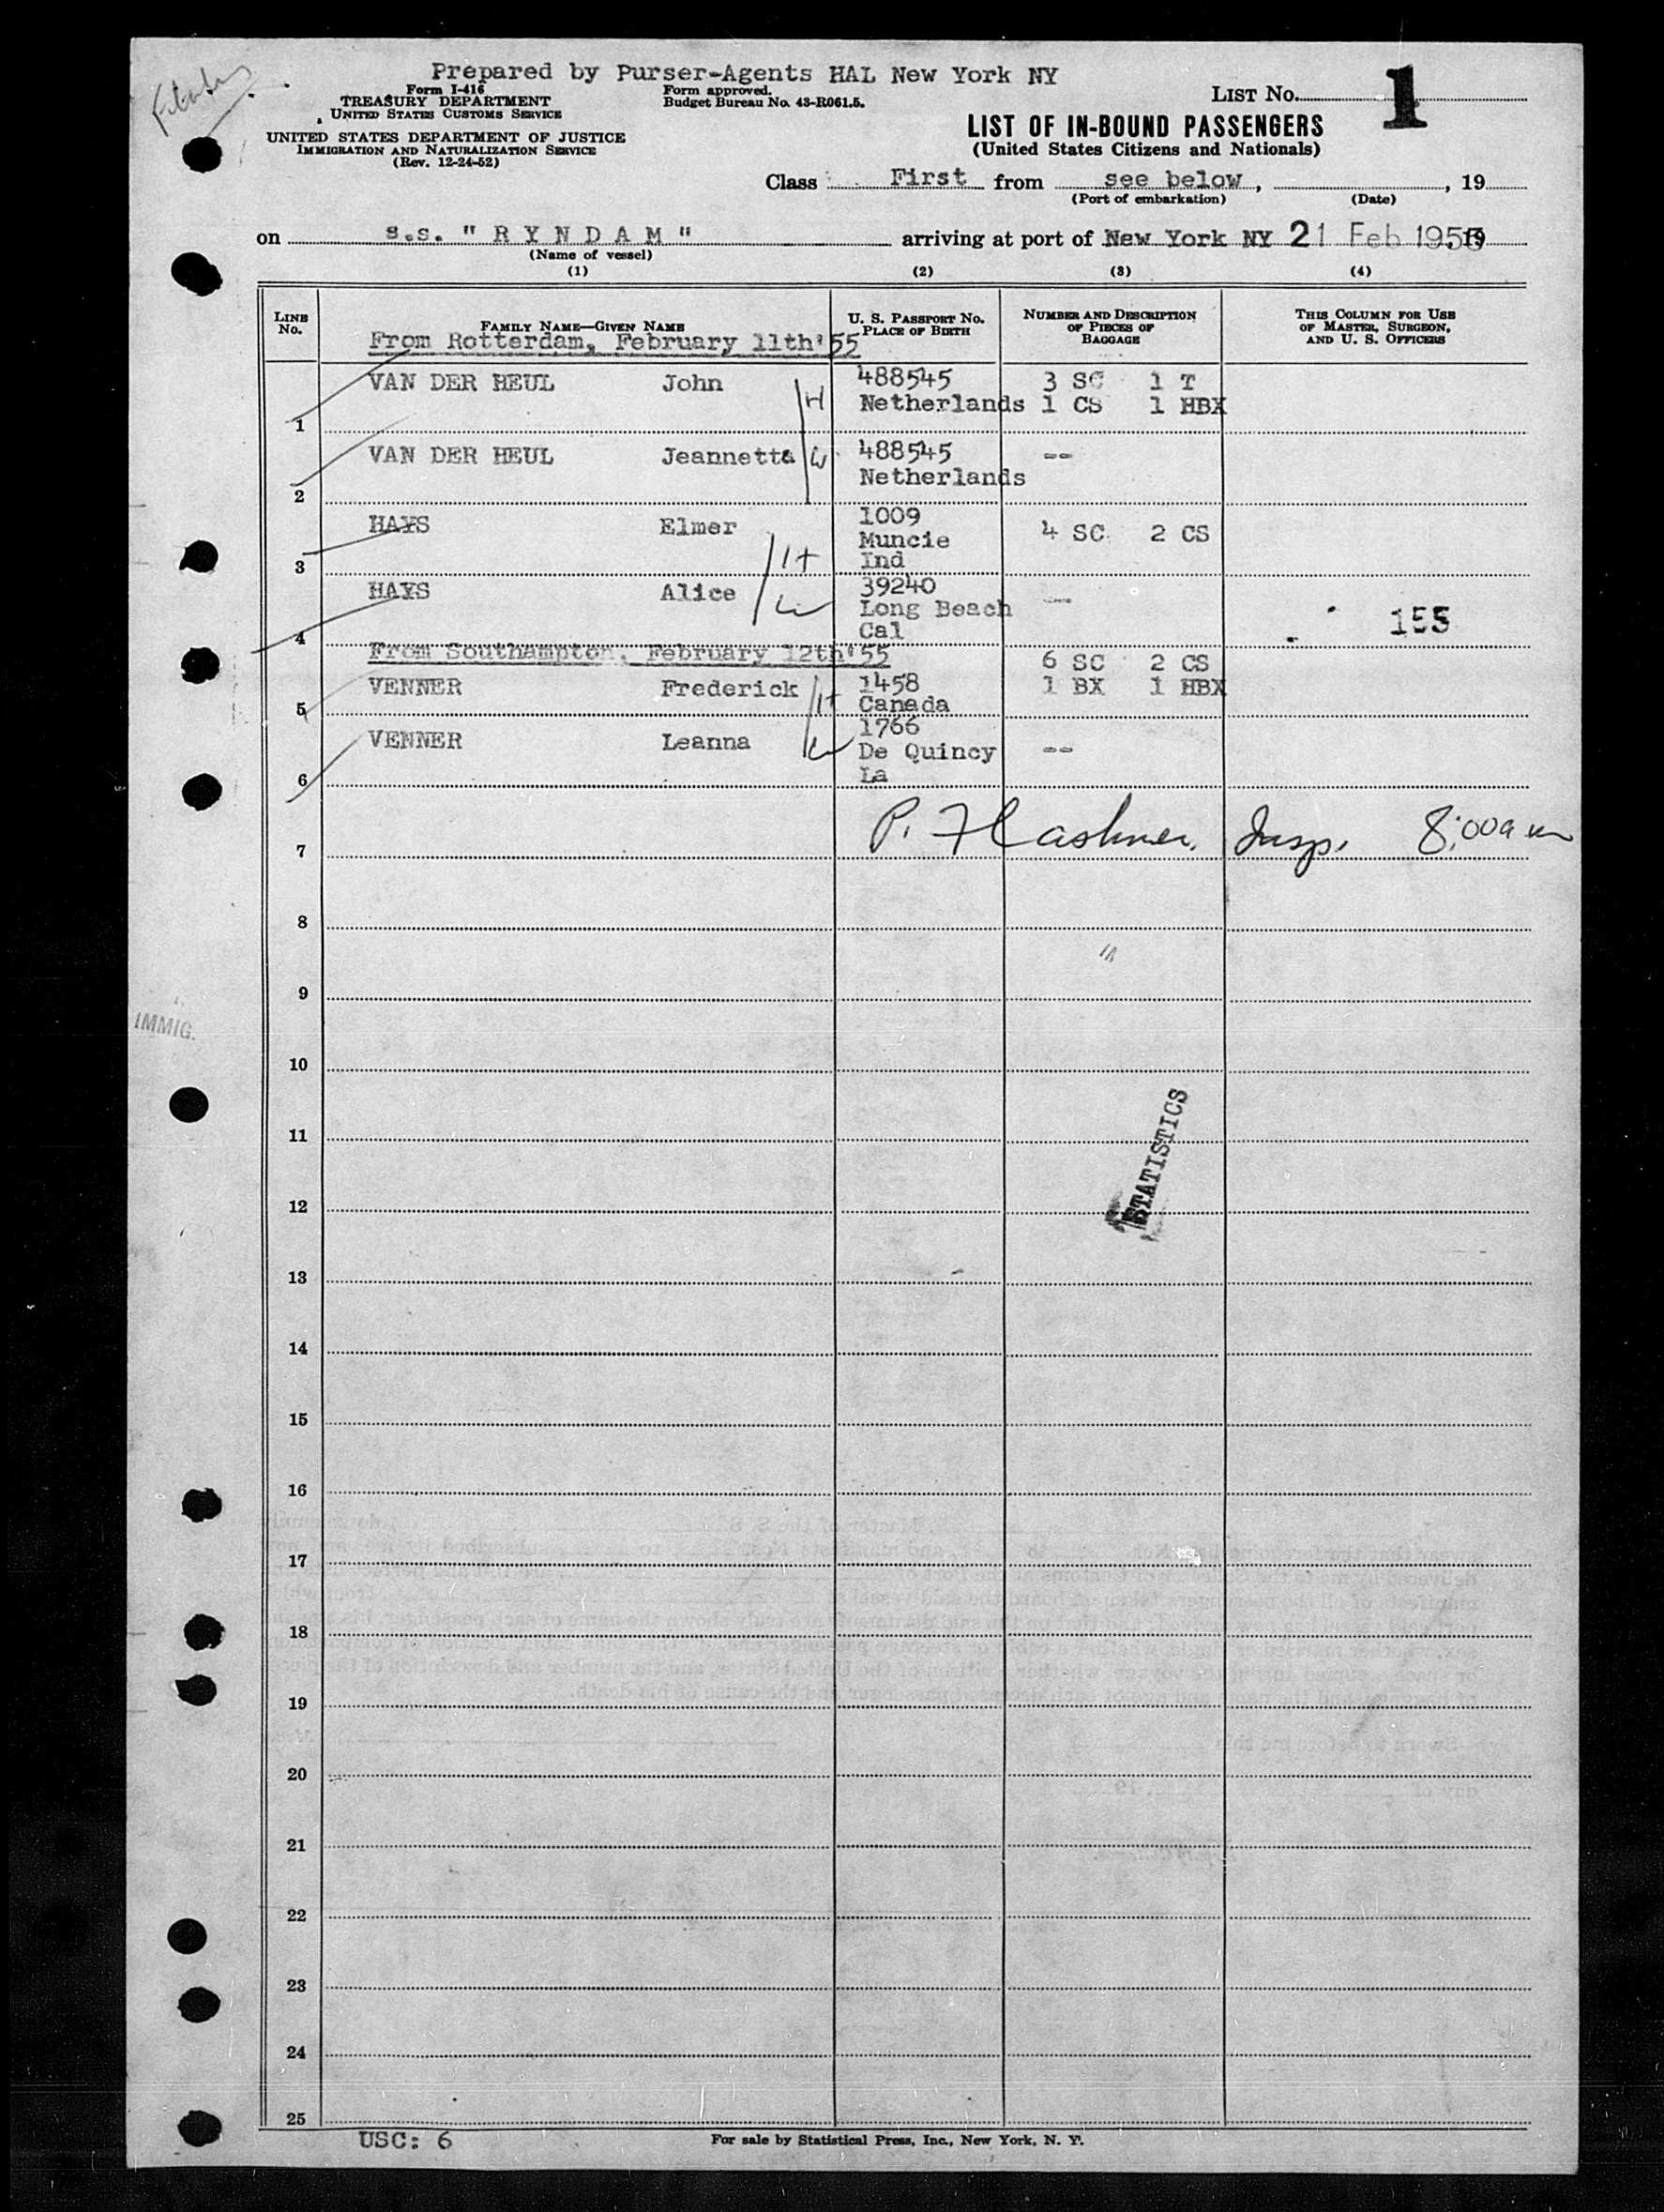 Prepared by Purser-Agents HAL New York NY
Form I-416
TREASURY DEPARTMENT
UNITED STATES CUSTOMS SERVICE
Form approved.
Budget Bureau No. 43-R061.5.
LIST No. 1
UNITED STATES DEPARTMENT OF JUSTICE
IMMIGRATION AND NATURALIZATION SERVICE
(Rev. 12-24-52)
LIST OF IN-BOUND PASSENGERS
(United States Citizens and Nationals)
Class First from see below, , 19
(Port of embarkation) (Date)
on s.s. "RYNDAM" arriving at port of New York NY 21 Feb 1955 19
(Name of vessel)
(1) (2) (3) (4)
LINE No.
FAMILY NAME—GIVEN NAME
U. S. PASSPORT No.
PLACE OF BIRTH
NUMBER AND DESCRIPTION
OF PIECES OF
BAGGAGE
THIS COLUMN FOR USE
OF MASTER, SURGEON,
AND U. S. OFFICERS
From Rotterdam, February 11th'55
VAN DER HEUL John H 488545 3 SC 1 T
Netherlands 1 CS 1 HBX
1
VAN DER HEUL Jeannetta W 488545 --
Netherlands
2
HAYS Elmer H 1009 4 SC 2 CS
Muncie
Ind
3
HAYS Alice W 39240 --
Long Beach 155
Cal
4
From Southampton, February 12th'55 6 SC 2 CS
VENNER Frederick H 1458 1 BX 1 HBX
Canada
5
VENNER Leanna W 1766
De Quincy --
La
6
P. Flashner, Insp. 8:00 a m
7
8
9
IMMIG.
10
11
STATISTICS
12
13
14
15
16
17
18
19
20
21
22
23
24
25
USC: 6
For sale by Statistical Press, Inc., New York, N. Y.